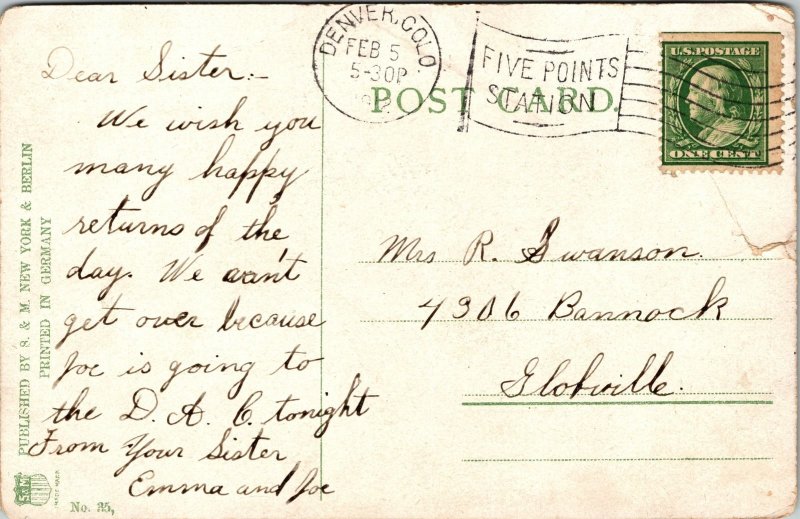 DENVER, COLO.
FEB 5
5-30P
FIVE POINTS
STATION
U.S. POSTAGE
ONE CENT
POST CARD.
Dear Sister:-
We wish you
many happy
returns of the
day. We can't
get over because
Joe is going to
the D. A. C. tonight
From Your Sister
Emma and Joe
Mrs R. Swanson.
4306 Bannock
Globville.
PUBLISHED BY S. & M. NEW YORK & BERLIN
PRINTED IN GERMANY
S&M
No. 35,